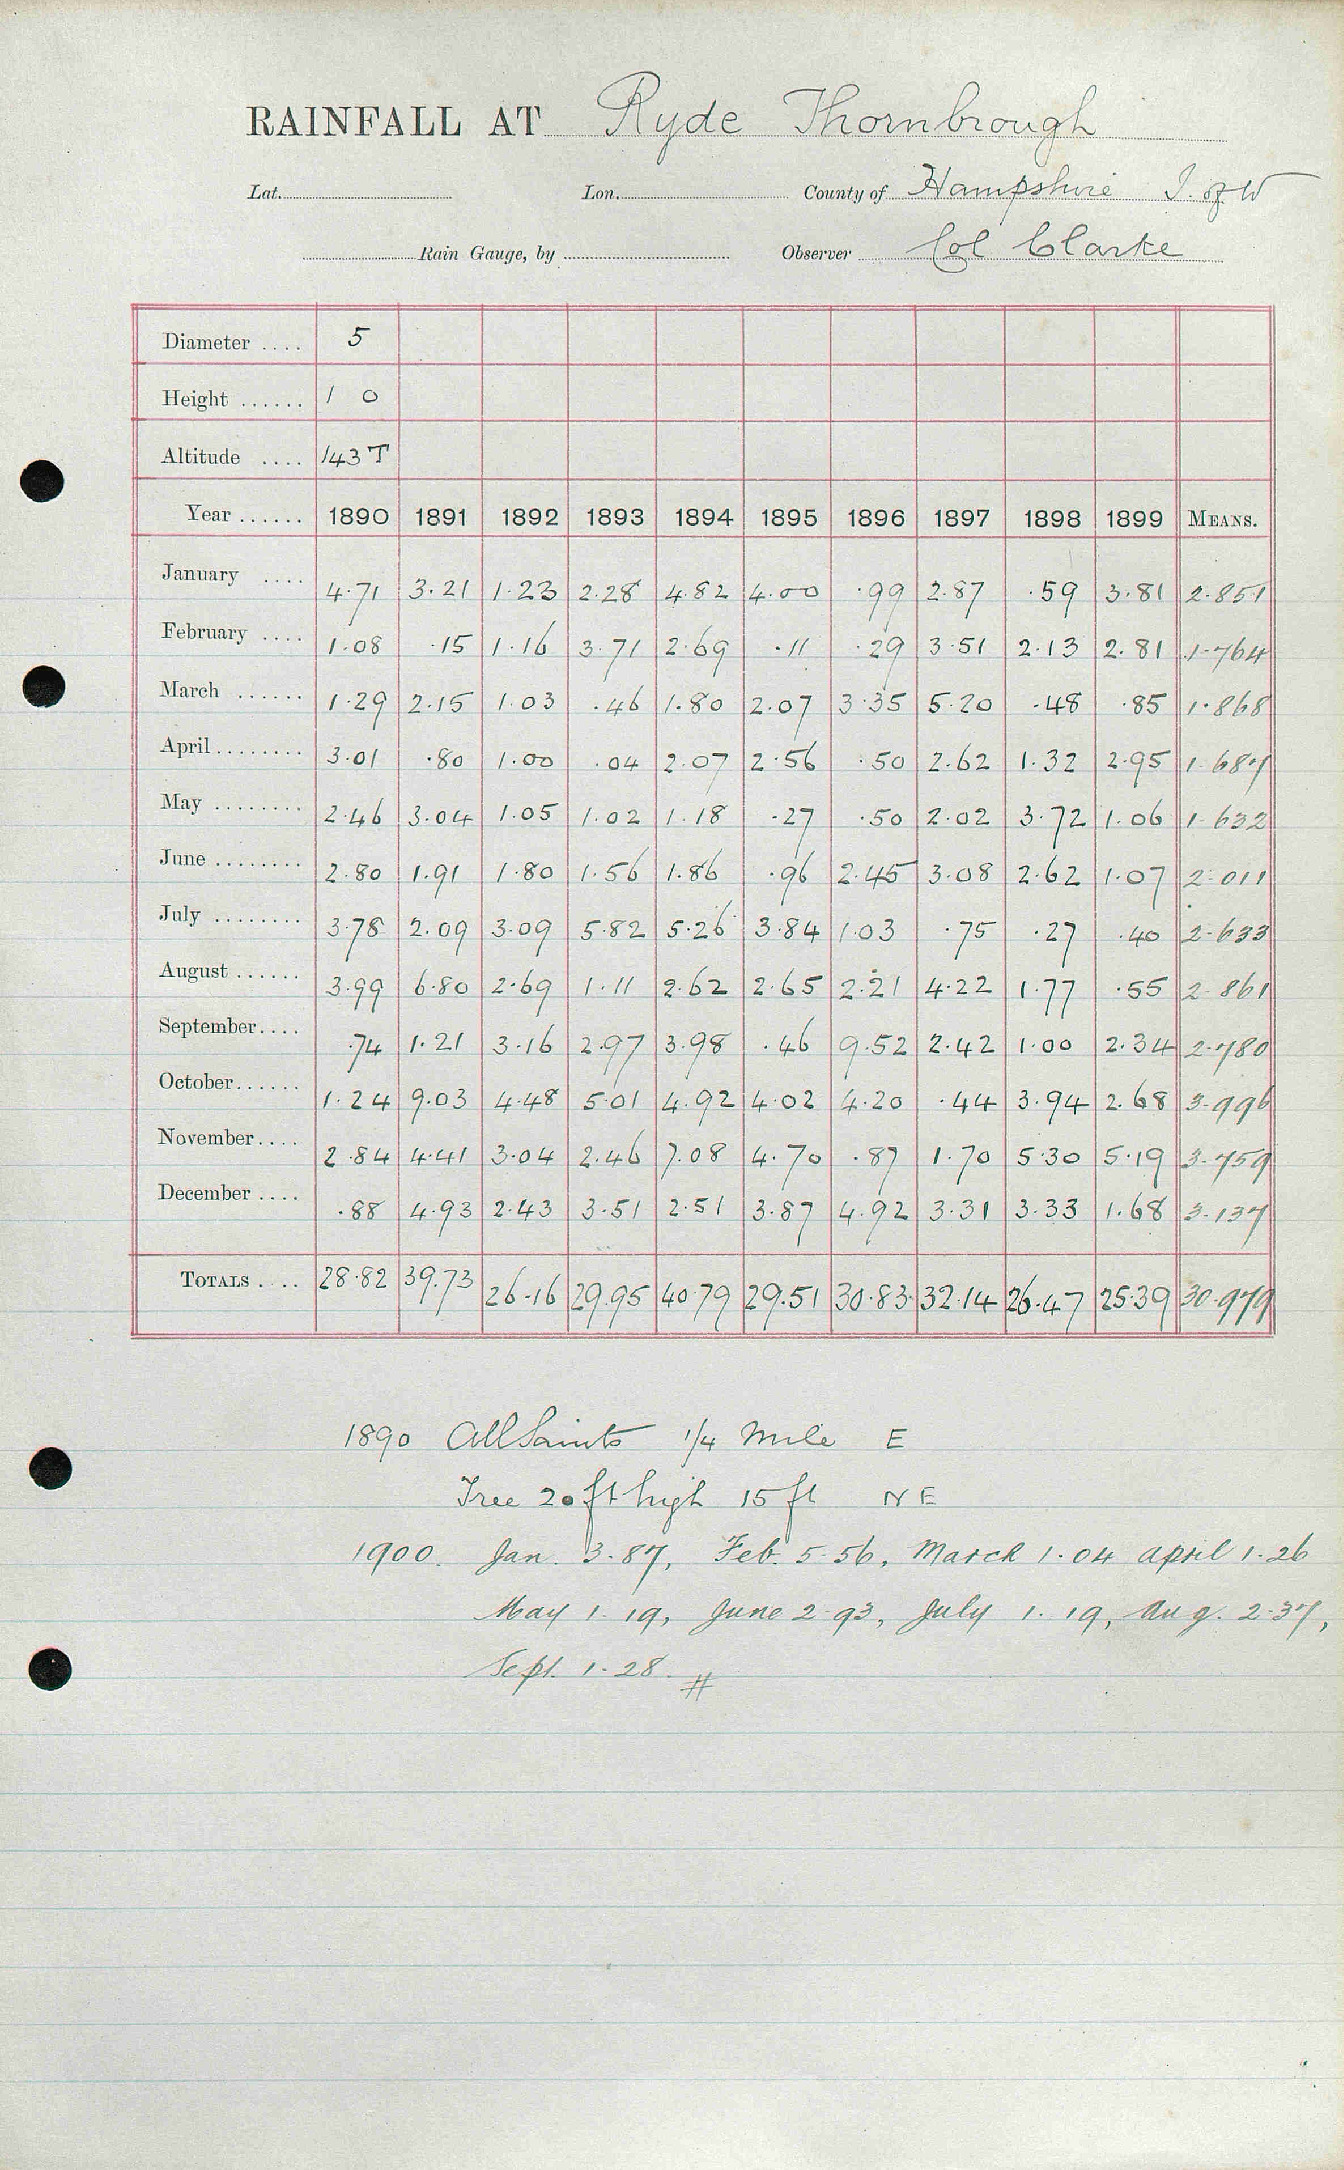 RAINFALL AT Ryde Thornbrough
Lat. Lon. County of Hampshire I. of W
Rain Gauge, by Observer Col Clarke
Diameter .... 5
Height ...... 1 0
Altitude .... 143 T
Year ...... 1890 1891 1892 1893 1894 1895 1896 1897 1898 1899 MEANS.
January .... 4.71 3.21 1.23 2.28 4.82 4.00 .99 2.87 .59 3.81 2.851
February .... 1.08 .15 1.16 3.71 2.69 .11 .29 3.51 2.13 2.81 1.764
March ...... 1.29 2.15 1.03 .46 1.80 2.07 3.35 5.20 .48 .85 1.868
April ........ 3.01 .80 1.00 .04 2.07 2.56 .50 2.62 1.32 2.95 1.687
May ........ 2.46 3.04 1.05 1.02 1.18 .27 .50 2.02 3.72 1.06 1.632
June ........ 2.80 1.91 1.80 1.56 1.86 .96 2.45 3.08 2.62 1.07 2.011
July ........ 3.78 2.09 3.09 5.82 5.26 3.84 1.03 .75 .27 .40 2.633
August ...... 3.99 6.80 2.69 1.11 2.62 2.65 2.21 4.22 1.77 .55 2.861
September .... .74 1.21 3.16 2.97 3.98 .46 9.52 2.42 1.00 2.34 2.780
October ...... 1.24 9.03 4.48 5.01 4.92 4.02 4.20 .44 3.94 2.68 3.996
November .... 2.84 4.41 3.04 2.46 7.08 4.70 .87 1.70 5.30 5.19 3.759
December .... .88 4.93 2.43 3.51 2.51 3.87 4.92 3.31 3.33 1.68 3.137
TOTALS .... 28.82 39.73 26.16 29.95 40.79 29.51 30.83 32.14 26.47 25.39 30.979
1890 All Saints 1/4 Mile E
Tree 20 ft high 15 ft NE
1900. Jan. 3.87, Feb. 5.56, March 1.04 April 1.26
May 1.19, June 2.93, July 1.19, Aug. 2.37,
Sept. 1.28. #